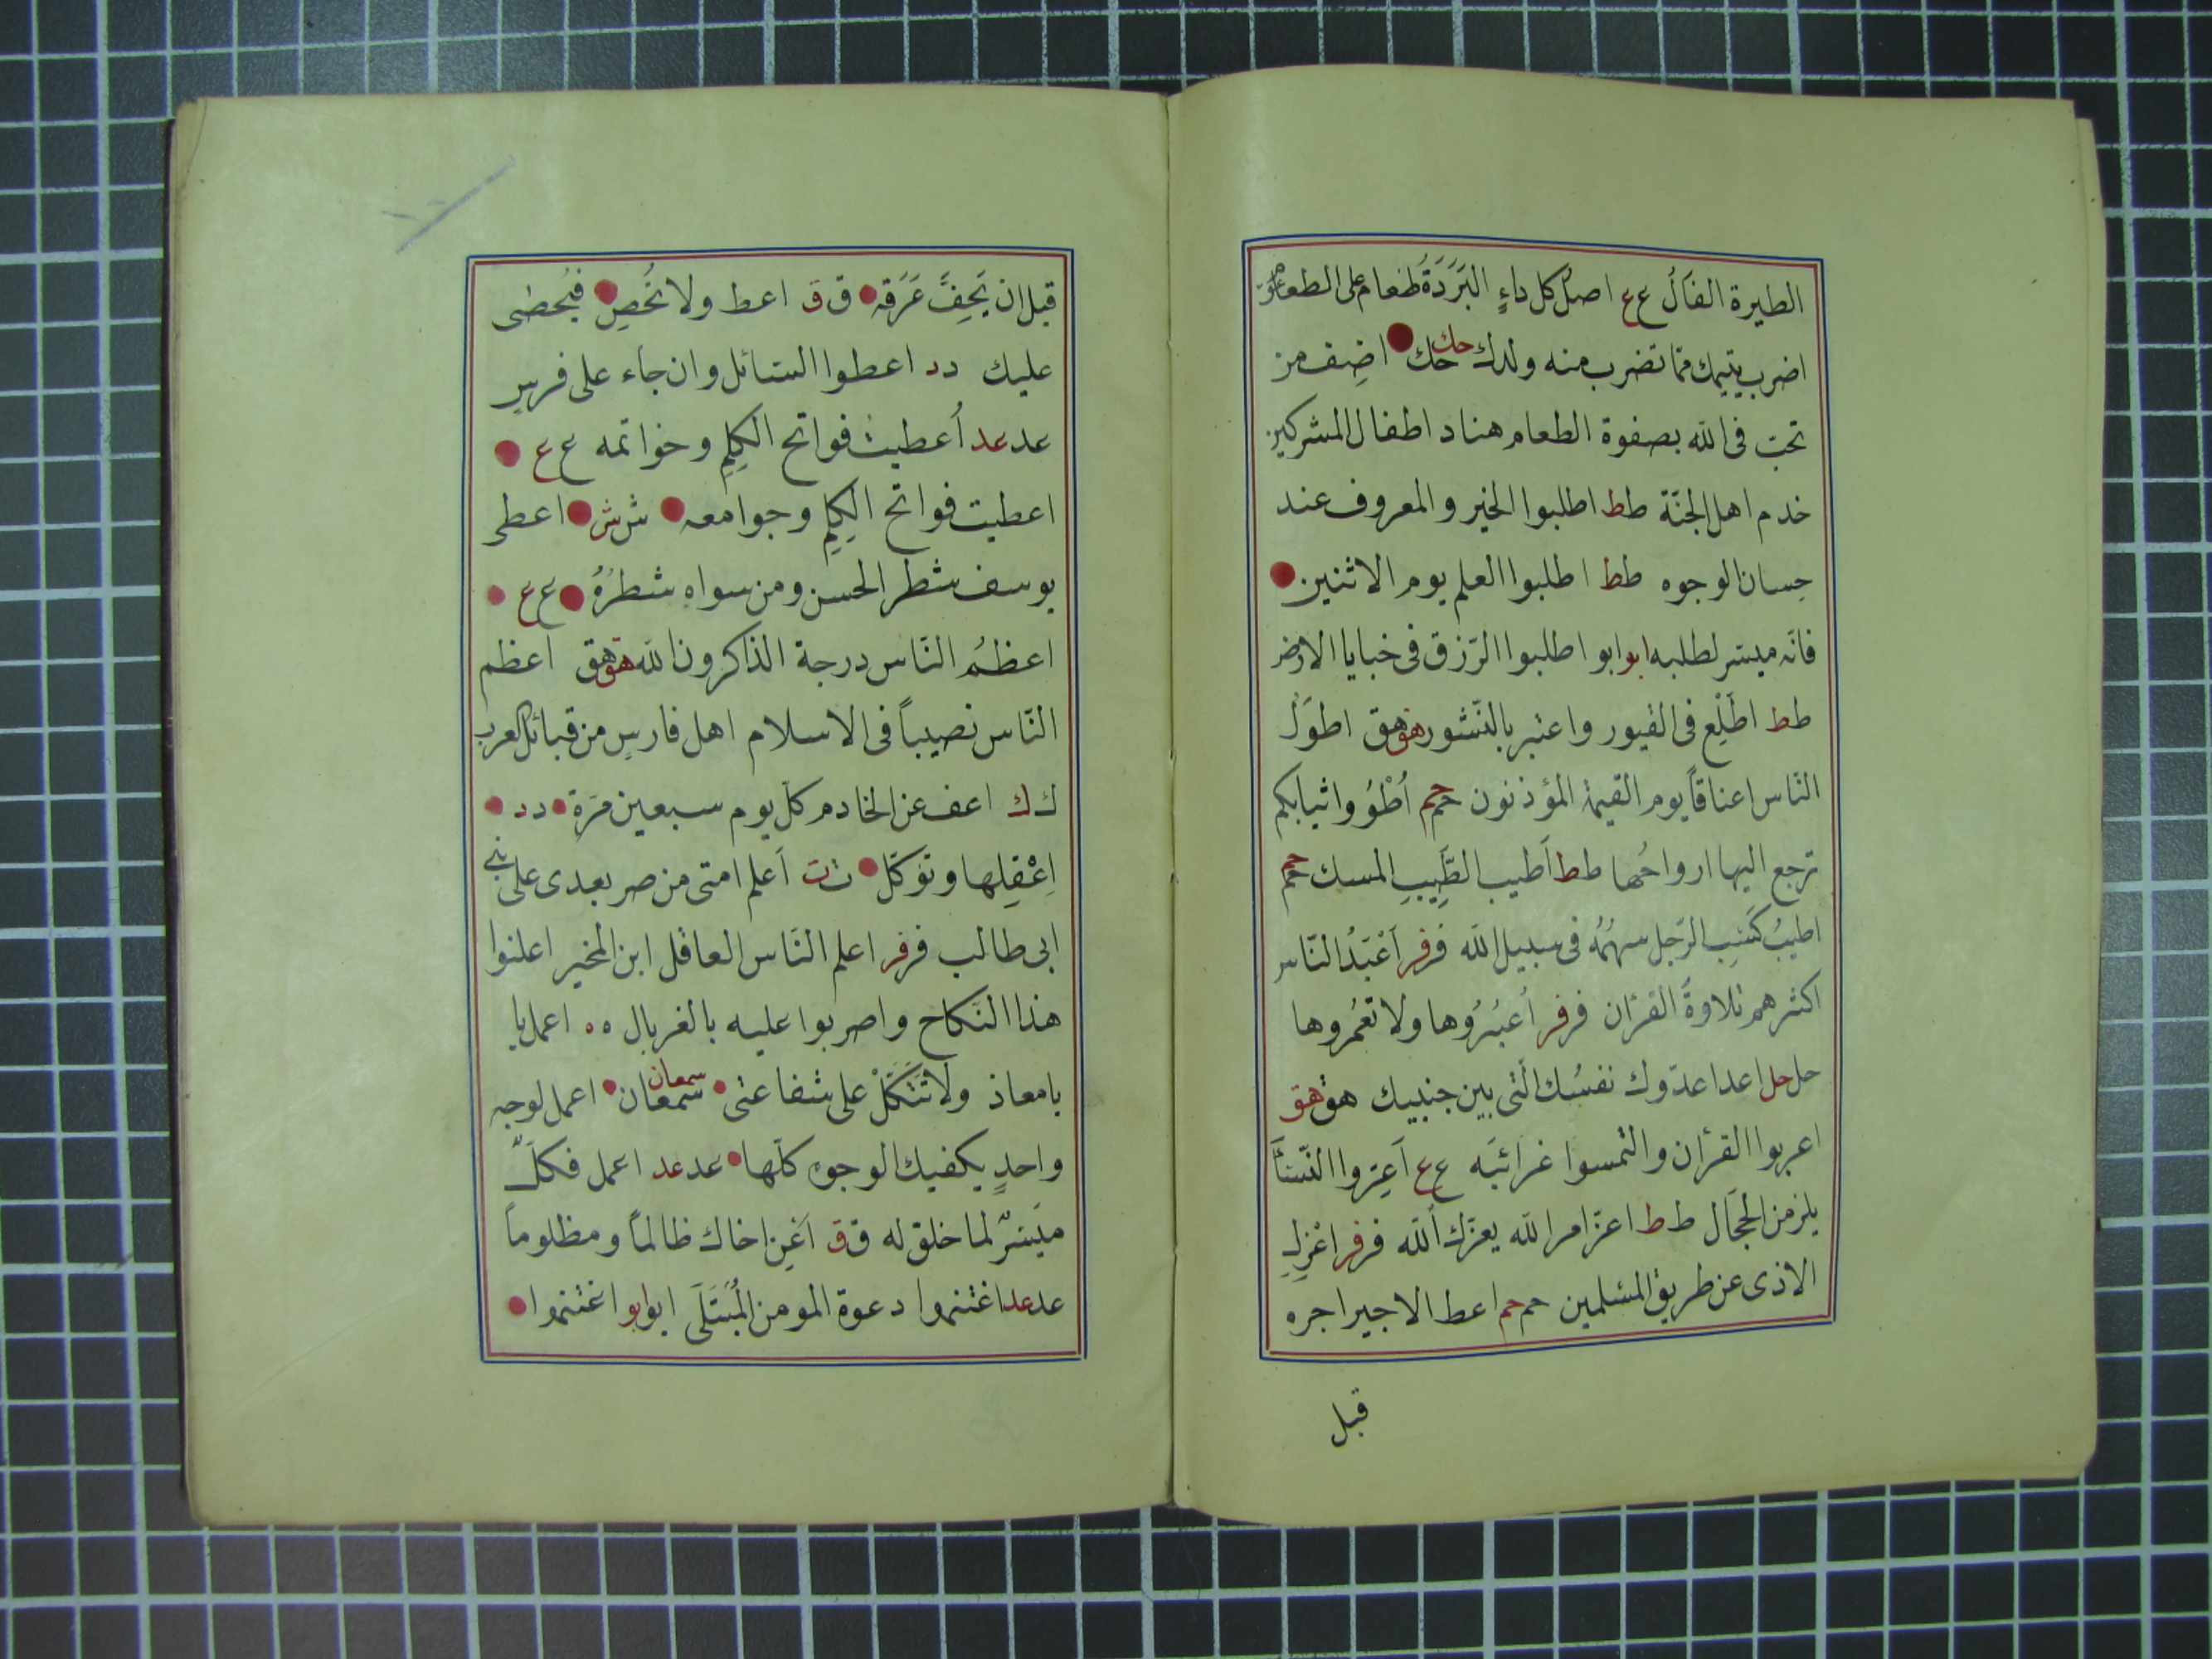 الطيرة الفَالُ ع ع اصلُ كل داءٍ البَرَدَةُ طعام على الطعام
اضرب يتيمك ممّا تضرب منه ولدك حك حك اضِف من
تحبّ فى الله بصفوة الطعام هناد اطفال المشركين
خدم اهل الجنّة ط ط اطلبوا الخير والمعروف عند
حِسان الوجوه ط ط اطلبوا العلم يوم الاثنين
فانّه ميسّر لطلبه ابو ابو اطلبوا الرّزق فى خبايا الارض
ط ط اطّلِع فى القبور واعتبر بالنّشور هق هق اطوَلُ
النّاس اعناقاً يوم القيمة المؤذنون حم حم اُطْوُوا ثيابكم
ترجع اليها ارواحُها ط ط اَطيب الطَّيِبِ المسك حم حم
اطيبُ كَسْبِ الرّجل سهمُه فى سبيل الله فر فر اَعْبَدُ النّاس
اكثرهم تلاوةً القرءان فر فر اُعبُرُوها ولا تَعْمُروها
حل حل اعدا عدّوك نفسُك الّتى بين جنبيك هق هق
اعربوا القرءان والتمسوا غرائبَه ع ع اَعِرّوا النّسَاَ
يلزمن الحِجَال ط ط اعزّ امر الله يعزّك الله فر فر اعْزِل
الاذى عن طريق المسلمين حم حم اعط الاجير اجره
قبل
قبل ان يَجِفَّ عَرَقه ق ق اعط ولا تُحْصِ فيُحصٰى
عليك د د اعطوا السّائل وان جاء على فرسٍ
عد عد اُعطيتُ فواتح الكِلِمِ وخواتمه ع ع
اعطيت فواتح الكِلِمِ وجوامعه ش ش اعطى
يوسف شطر الحسن ومن سواه شطرُهُ ع ع
اعظمُ النّاس درجة الذاكرون الله هق هق اعظم
النّاس نصيباً فى الاسلام اهل فارس من قبائل العرب
ك ك اعف عن الخادم كلّ يوم سبعين مرّة د د
اِعْقِلها وتوكّل ت ت اَعلم امتى من صر بعدى على بن
ابى طالب فر فر اعلم النّاس العاقل ابن المخير اعلنوا
هذا النّكاح واضربوا عليه بالغربال ه ه اعمل يا
يا معاذ ولا تَتَّكَلْ على شفاعتى سمعان سمعان اعمل لوجه
واحدٍ يكفيك الوجوه كلّها عد عد اعمل فكلّ
ميَسّرٌ لما خلق له ق ق اَغِن اخاك ظالماً ومظلوماً
عد عد اغتنموا دعوة المومن المُبْتَلَى ابو ابو اغتنموا